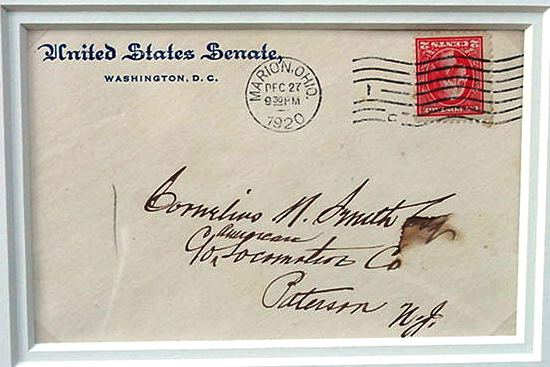 United States Senate,
WASHINGTON, D. C.
MARION, OHIO.
DEC 27
9 30 PM
1920
2 CENTS 2
Cornelius N. Smith
American
C/o Locomotive Co
Paterson N.J.